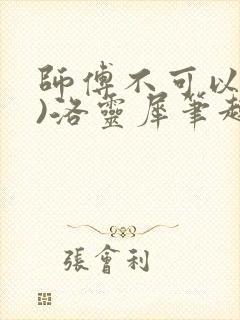 師傅不可以
)洛靈犀筆趣
張會利